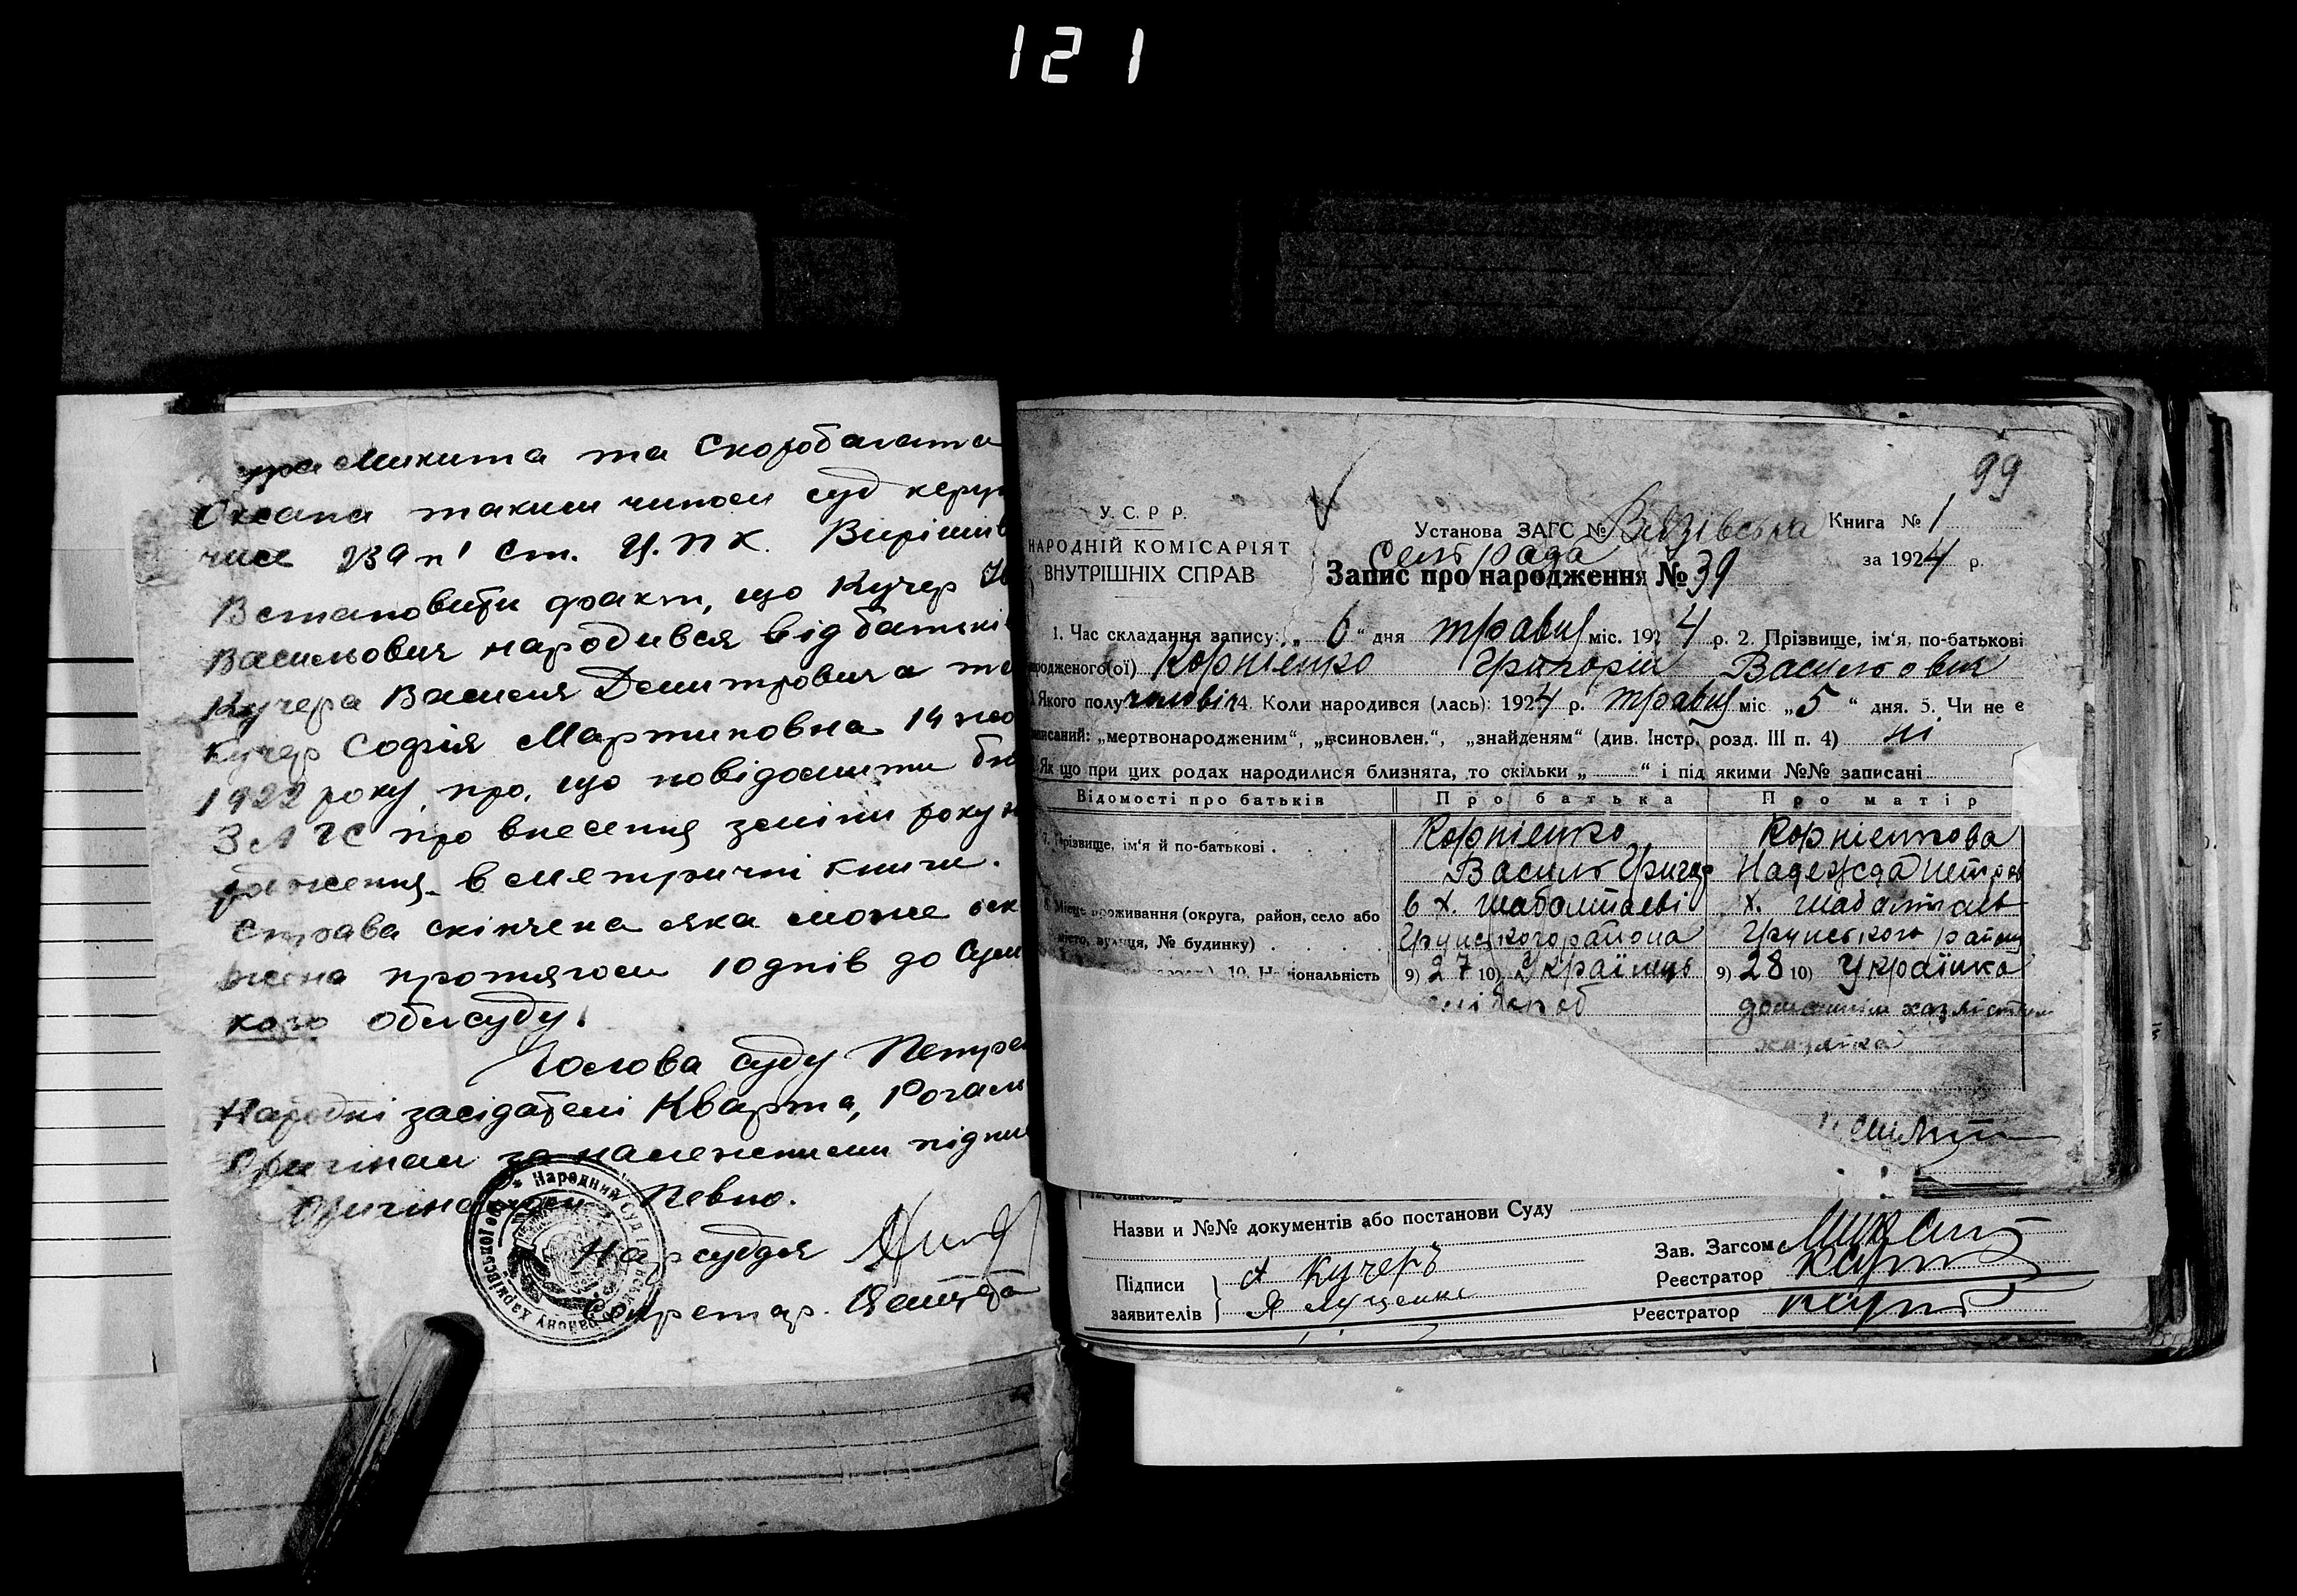 121
Микита та Скоробагата
Оксана таким чином суд керує
Ст. Ц.П.К. Вирішив
Встановити факт, що Кучер
Васильович народився від батьків
Кучера Василия Дмитровича та
Кучер Софія Мартиновна 14
1922 року, про, що повідомити
ЗАГС про внесення заміни року
в метричні книги.
Справа скінчена яка може
протягом 10 днів до Сум
кого облсуду.
Голова суду Петре
Народні засідателі Кварта, Рогаль
Оригінал за належними підпи
Певно.
Нарсуддя
Секретар.
Народний Суд
району Харківської
99
У.С.Р.Р.
НАРОДНІЙ КОМІСАРІЯТ
ВНУТРІШНІХ СПРАВ
Установа ЗАГС № Вязівська Книга № 1
Сельрада
за 1924 р.
Запис про народження № 39
1. Час складання запису: „ 6 “ дня травня міс. 1924 р. 2. Прізвище, ім‘я, по-батькові
родженого(ої) Корніенко Григорій Васильович
Якого полу чоловіч 4. Коли народився (лась): 1924 р. травня міс „ 5 “ дня. 5. Чи не є
записаний: „мертвонародженим“, „всиновлен.“, „знайденям“ (див. Інстр. розд. III п. 4) ні
Як що при цих родах народилися близнята, то скільки „ “ і під якими №№ записані
Відомості про батьків Про батька Про матір
7. Прізвище, ім‘я й по-батькові . . . . Корніенко Корніенкова
Василь Григор Надежда Петров
8. Місце проживання (округа, район, село або
місто, вулиця, № будинку) . . . .
х. Шабалтаеві х. Шабалтаев
Грунського района Грунського району
10. Національність 9) 27 10) Українець 9) 28 10) Українка
хлібороб домашнім хазяйством
хазяйка
Назви и №№ документів або постанови Суду
Підписи
заявителів
А Кучеръ
Я Луценко
Зав. Загсом
Реєстратор
Реєстратор